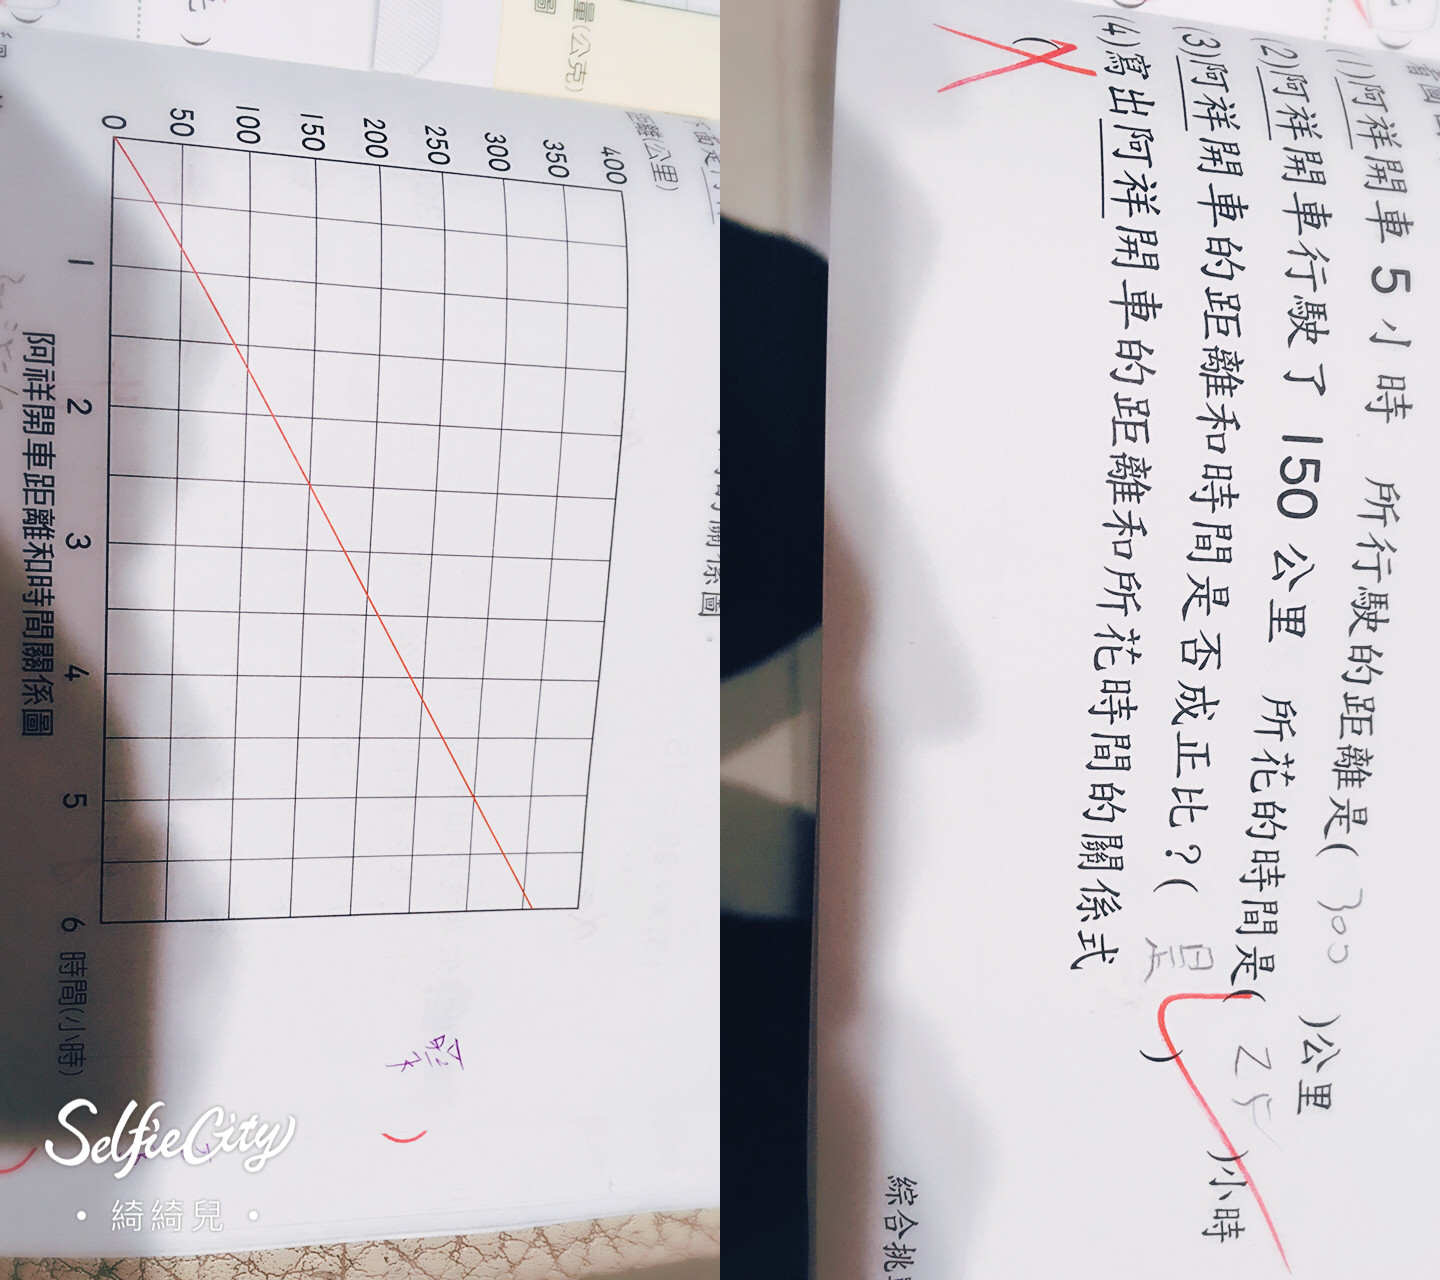 量(公克)
圖
距離(公里)
400
350
300
250
200
150
100
50
0
1
2
3
4
5
6 時間(小時)
阿祥開車距離和時間關係圖
關係圖
SelfieCity
• 綺綺兒 •
(1)阿祥開車 5 小時 所行駛的距離是( 300 )公里
(2)阿祥開車行駛了 150 公里 所花的時間是( 2.5 )小時
(3)阿祥開車的距離和時間是否成正比？( 是 )
(4)寫出阿祥開車的距離和所花時間的關係式
( )
綜合挑